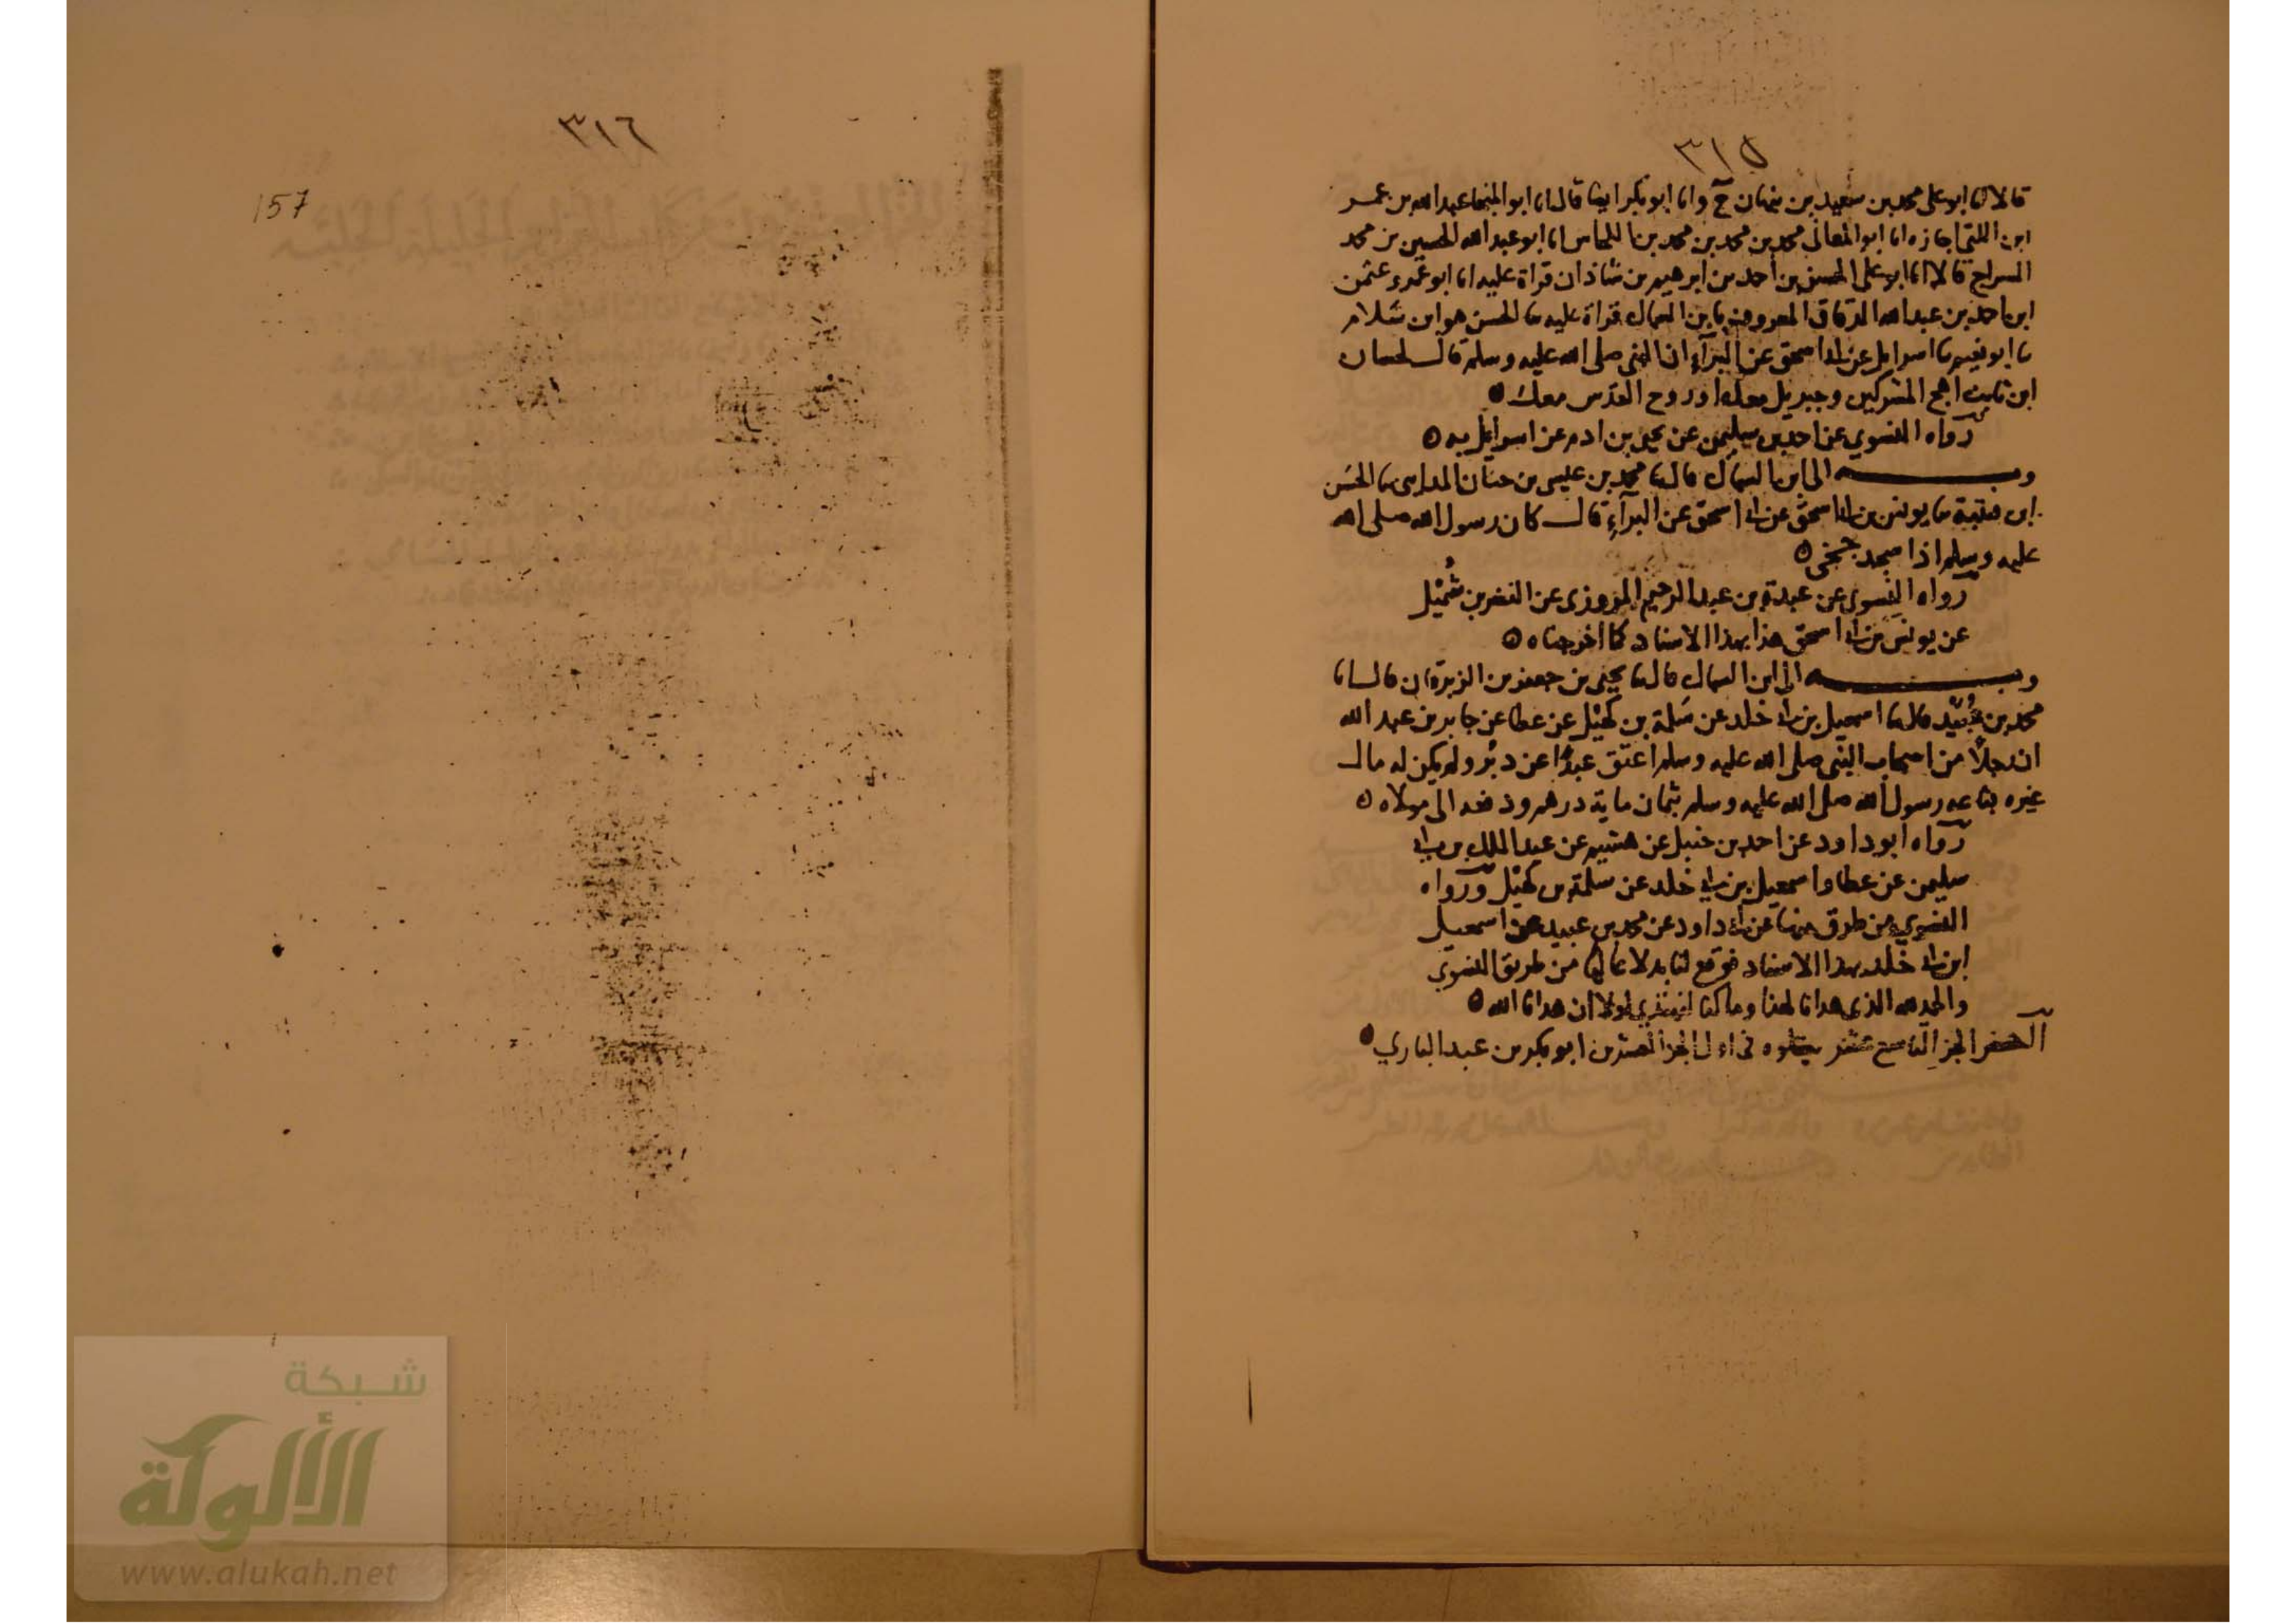 ٣١٥
قالا انا ابو على محمد بن سعيد بن نبهان ح وانا ابو بكر ايضا قال انا ابو المنجا عبد الله بن عمر
ابن اللتي اجازه انا ابو المعالى محمد بن محمد بن محمد بن اللحاس انا ابو عبد الله الحسين بن محمد
السراج قالا انا ابو على الحسن بن احمد بن ابرهيم بن شاذان قراة عليه انا ابو عمرو عثمن
ابن احمد بن عبد الله الدقاق المعروف بابن السماك قراة عليه ثنا الحسن هو ابن سلام
ثنا ابو نعيم ثنا اسرايل عن ابى اسحق عن البرآء ان النبى صلى الله عليه وسلم قال لحسان
ابن ثابت اهج المشركين وجبريل معك او روح القدس معك
رواه النسوي عن احمد بن سليمن عن يحيى بن ادم عن اسرايل به
وبه الى ابن السماك قال ثنا محمد بن عيسى بن حنان المدايني ثنا الحسن
ابن قتيبة ثنا يونس بن ابى اسحق عن ابى اسحق عن البرآء قال كان رسول الله صلى الله
عليه وسلم اذا سجد جخى
رواه النسوي عن عبدة بن عبد الرحيم المروزى عن النضر بن شُمَيْل
عن يونس بن ابى اسحق هذا بهذا الاسناد كما اخرجناه
وبه الى ابن السماك قال ثنا يحيى بن جعفر بن الزبرقان قال انا
محمد بن عُبَيْد قال ثنا اسمعيل بن ابى خلد عن سَلمة بن كهَيْل عن عطا عن جابر بن عبد الله
ان رجلًا من اصحاب النبى صلى الله عليه وسلم اعتق عبدًا عن دبُر ولم يكن له مال
غيره فباعه رسول الله صلى الله عليه وسلم بثمان ماية درهم ودفعه الى مولاه
رواه ابو داود عن احمد بن حنبل عن هشيم عن عبد الملك بن ابى
سليمن عن عطا واسمعيل بن ابى خلد عن سلمة بن كهَيْل ورواه
النسوي من طرق منها عن ابى داود عن محمد بن عبيد عن اسمعيل
ابن ابى خلد بهذا الاسناد فوقع لنا بدلا عاليا من طريق النسوي
والحمد لله الذى هدانا لهذا وما كنا لنهتدي لولا ان هدانا الله
آخر الجزء التاسع عشر يتلوه فى اول الجزء العشرين ابو بكر بن عبد الباري
٣١٦
157
شبكة
الألوكة
www.alukah.net